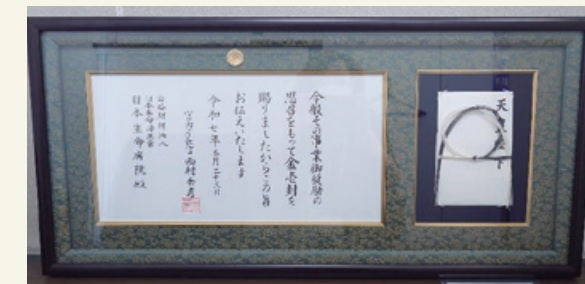 今般その事業御奨励の
思召をもって金壱封を
賜りましたからこの旨
お伝えいたします
令和七年
宮内庁長官 西村泰彦
公益財団法人
日本生命済生会
日本生命病院殿
天皇陛下